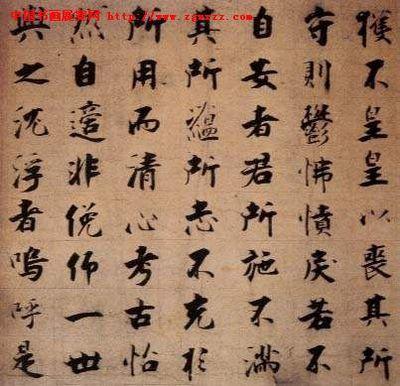 獲不皇皇以喪其所
守則鬱怫憤戾若不
自安者若所施不滿
其所蘊所志不克於
所用而清心考古怡
然自適非俛仰一世
與之沈浮者嗚呼是